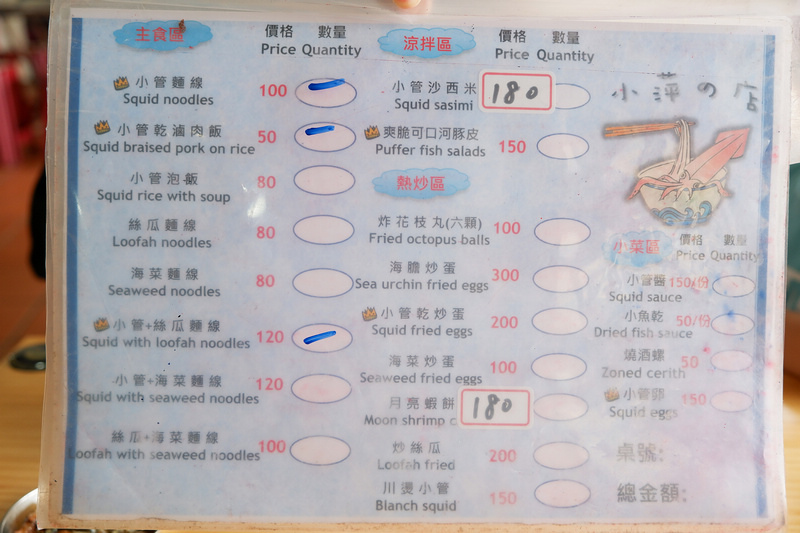 主食區 價格 數量
Price Quantity
小管麵線
Squid noodles 100
小管乾滷肉飯
Squid braised pork on rice 50
小管泡飯
Squid rice with soup 80
絲瓜麵線
Loofah noodles 80
海菜麵線
Seaweed noodles 80
小管+絲瓜麵線
Squid with loofah noodles 120
小管+海菜麵線
Squid with seaweed noodles 120
絲瓜+海菜麵線
Loofah with seaweed noodles 100
涼拌區 價格 數量
Price Quantity
小管沙西米
Squid sasimi 180
爽脆可口河豚皮
Puffer fish salads 150
熱炒區
炸花枝丸(六顆)
Fried octopus balls 100
海膽炒蛋
Sea urchin fried eggs 300
小管乾炒蛋
Squid fried eggs 200
海菜炒蛋
Seaweed fried eggs 100
月亮蝦餅
Moon shrimp c 180
炒絲瓜
Loofah fried 200
川燙小管
Blanch squid 150
小萍の店
小菜區 價格 數量
Price Quantity
小管醬 150/份
Squid sauce
小魚乾 50/份
Dried fish sauce
燒酒螺 50
Zoned cerith
小管卵 150
Squid eggs
桌號:
總金額: